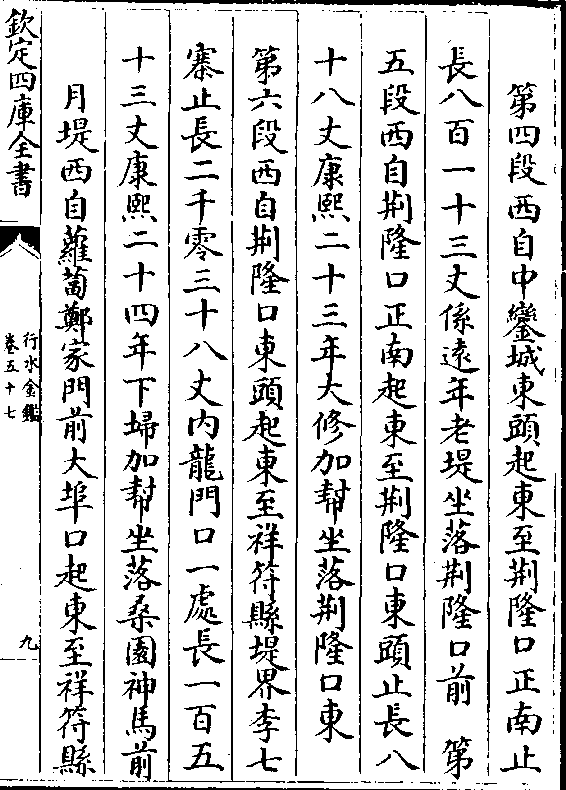 第四段西自中鑾城東頭起東至荆隆口正南止
長八百一十三丈係遠年老堤坐落荆隆口前　第
五段西自荆隆口正南起東至荆隆口東頭止長八
十八丈康熙二十三年大修加幇坐落荆隆口東
第六段西自荆隆口東頭起東至祥符縣堤界李七
寨止長二千零三十八丈内龍門口一處長一百五
十三丈康熙二十四年下埽加幇坐落桑園神馬前
月堤西自蘿蔔鄭家門前大埠口起東至祥符縣
欽定四庫全書
行水金鑑
卷五十七
九